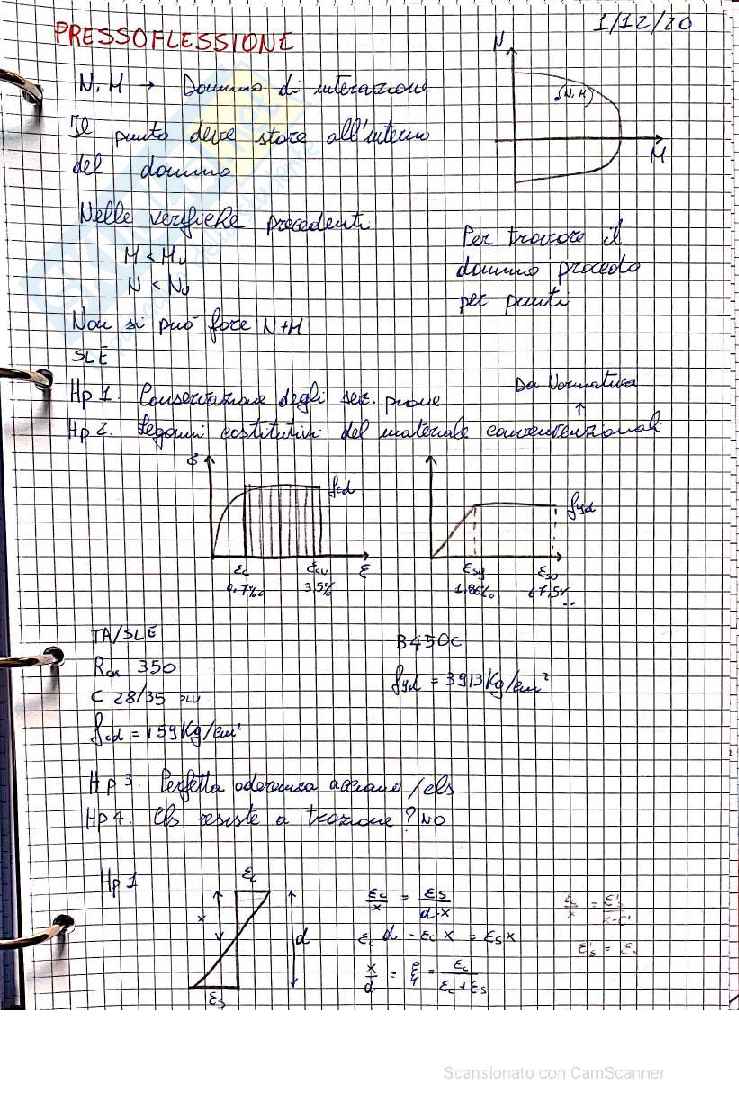 1/12/20
PRESSOFLESSIONE
N, M → Dominio di interazione
N
(N, M)
M
Il punto deve stare all'interno
del dominio
Nelle verifiche precedenti
M < Mu
N < Nu
Per trovare il
dominio procedo
per punti
Non si può fare N+M
SLE
Hp 1. Conservazione degli sez. piane
Da Normativa
Hp 2. Legami costitutivi del materiale convenzionali
fcd
εc
εcu
ε
3,5‰
fyd
εsy
εsu
1,86‰
67,5‰
TA/SLE
Rck 350
C 28/35 SLU
fcd = 159 Kg/cm²
B450C
fyd = 3913 Kg/cm²
Hp 3. Perfetta aderenza acciaio/cls
Hp 4. Cls resiste a trazione? NO
Hp 1
εc
x
d
εs
εc/x = εs/d-x
εc d - εc x = εs x
x/d = ξ = εc/εc+εs
Scansionato con CamScanner